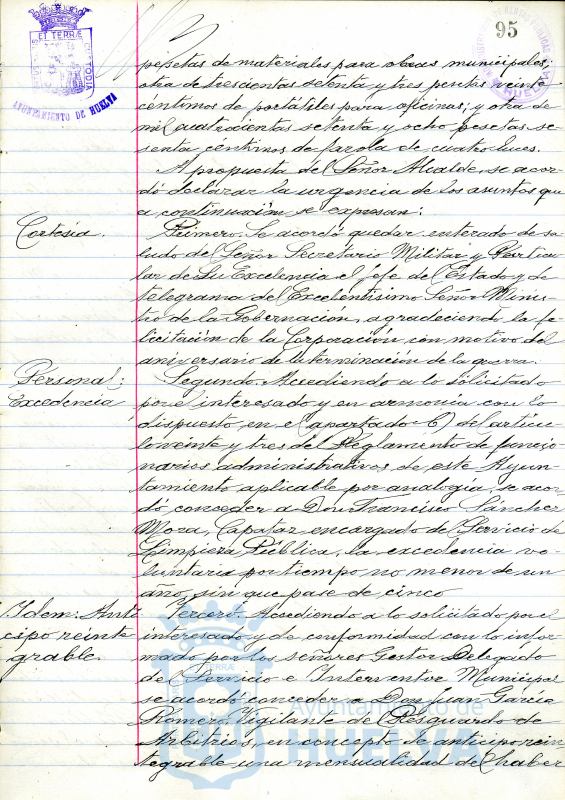 95
AYUNTAMIENTO DE HUELVA
pesetas de materiales para obras municipales;
otra de trescientas setenta y tres pesetas veinte
centimos de portátiles para oficinas; y otra de
mil cuatrocientas setenta y ocho pesetas se-
senta centimos de farola de cuatro luces.
A propuesta del Señor Alcalde, se acor-
dó declarar la urgencia de los asuntos que
a continuación se expresan:
Cortesía.
Primero. Se acordó quedar enterado de sa-
ludo del Señor Secretario Militar y Particu-
lar de Su Excelencia el Jefe del Estado y de
telegrama del Excelentísimo Señor Minis-
tro de la Gobernación, agradeciendo la fe-
licitación de la Corporación con motivo del
aniversario de la terminación de la guerra.
Personal:
Excedencia
Segundo. Accediendo a lo solicitado
por el interesado y en armonía con lo
dispuesto en el apartado C) del articu-
lo veinte y tres del Reglamento de funcio-
narios administrativos de este Ayun-
tamiento aplicable por analogía, se acor-
dó conceder a Don Francisco Sánchez
Mora, Capataz encargado del Servicio de
Limpieza Pública, la excedencia vo-
luntaria por tiempo no menor de un
año, sin que pase de cinco
Idem: Anti-
cipo reinte
grable.
Tercero. Accediendo a lo solicitado por el
interesado y de conformidad con lo infor-
mado por los señores Gestor Delegado
de Servicio e Interventor Municipal
se acordó conceder a Don José García
Romero, Vigilante del Resguardo de
Arbitrios, en concepto de anticipo rein-
tegrable una mensualidad de haber
Ayuntamiento de
HUELVA